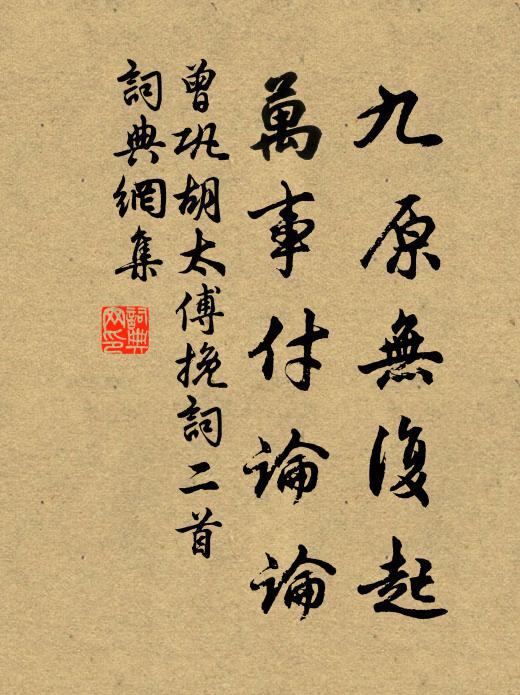 九原無復起
萬事付論論
曾巩胡太傅挽詞二首
詞典網集
詞典网印